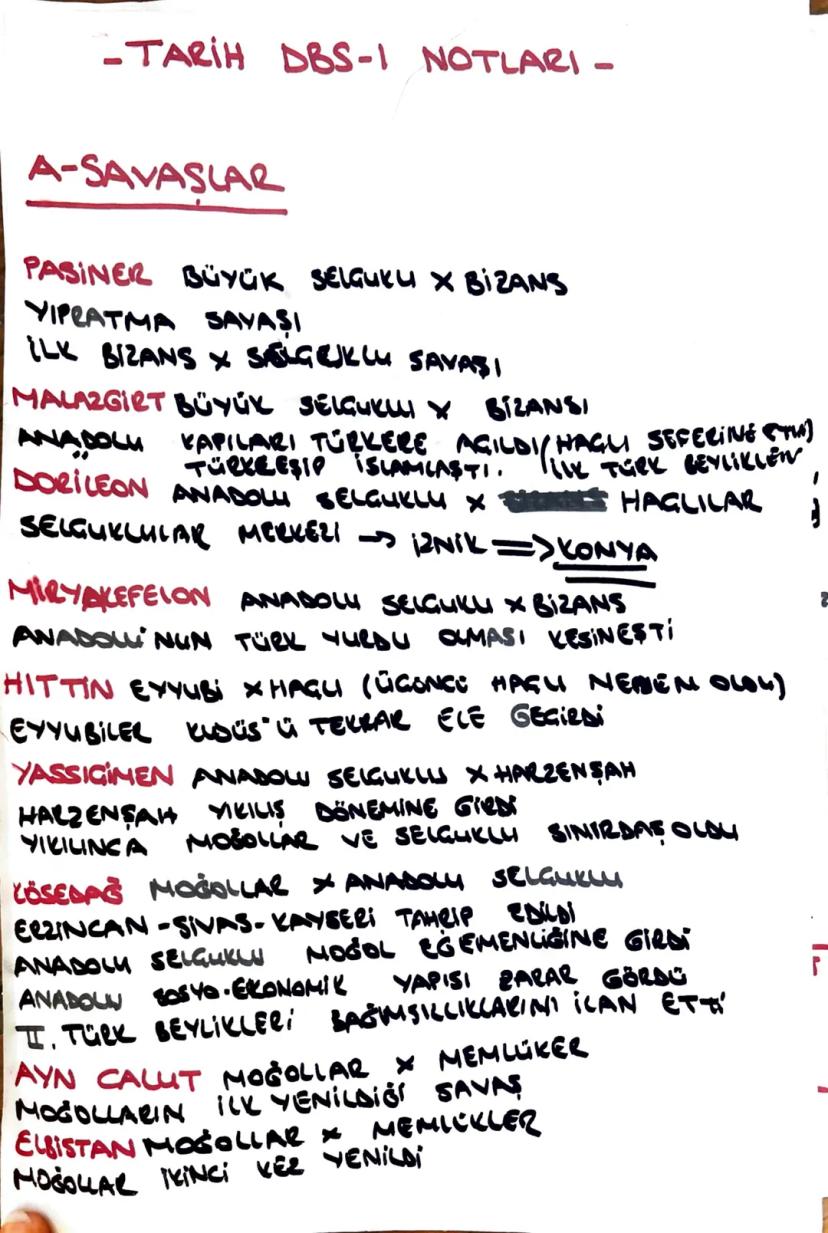 - TARİH DBS-1 NOTLARI -
A-SAVAŞLAR
PASİNER BÜYÜK SELÇUKLU X BİZANS
YIPRATMA SAVAŞI
İLK BİZANS X SELÇUKLU SAVAŞI
MALAZGİRT BÜYÜK SELÇUKLU X BİZANSI
ANADOLU KAPILARI TÜRKERE AÇILDI (HAÇLI SEFERİNE
TÜRKLEŞİP İSLAMLAŞTI. İLK TÜRK BEYLİKLERİ
DORİLEON ANADOLU SELÇUKLU X HAÇLILAR
SELÇUKLULAR MERKEZİ → İZNİK ⇒ KONYA
MİRYAKEFELON ANADOLU SELÇUKLU X BİZANS
ANADOLU'NUN TÜRK YURDU OLMASI KESİNEŞTİ
HITTİN EYYUBİ X HAÇLI (ÜÇÜNCÜ HAÇLI NEDEN OLDU)
EYYUBİLER KUDÜS'Ü TEKRAR ELE GEÇİRDİ
YASSIÇİMEN ANADOLU SELÇUKLU X HARZENŞAH
HARZENŞAH YIKILIŞ DÖNEMİNE GİRDİ
YIKILINCA MOĞOLLAR VE SELÇUKLU SINIRDAŞ OLDU
KÖSEDAĞ MOĞOLLAR X ANADOLU SELÇUKLU
ERZİNCAN - SİVAS - KAYSERİ TAHRİP EDİLDİ
ANADOLU SELÇUKLU MOĞOL EGEMENLİĞİNE GİRDİ
ANADOLU SOSYO-EKONOMİK YAPISI ZARAR GÖRDÜ
II. TÜRK BEYLİKLERİ BAĞIMSILLIKLARINI İLAN ETTİ
AYN CALUT MOĞOLLAR X MEMLÜKER
MOĞOLLARIN İLK YENİLDİĞİ SAVAŞ
ELBİSTAN MOĞOLLAR X MEMLÜKLER
MOĞOLLAR İKİNCİ KEZ YENİLDİ